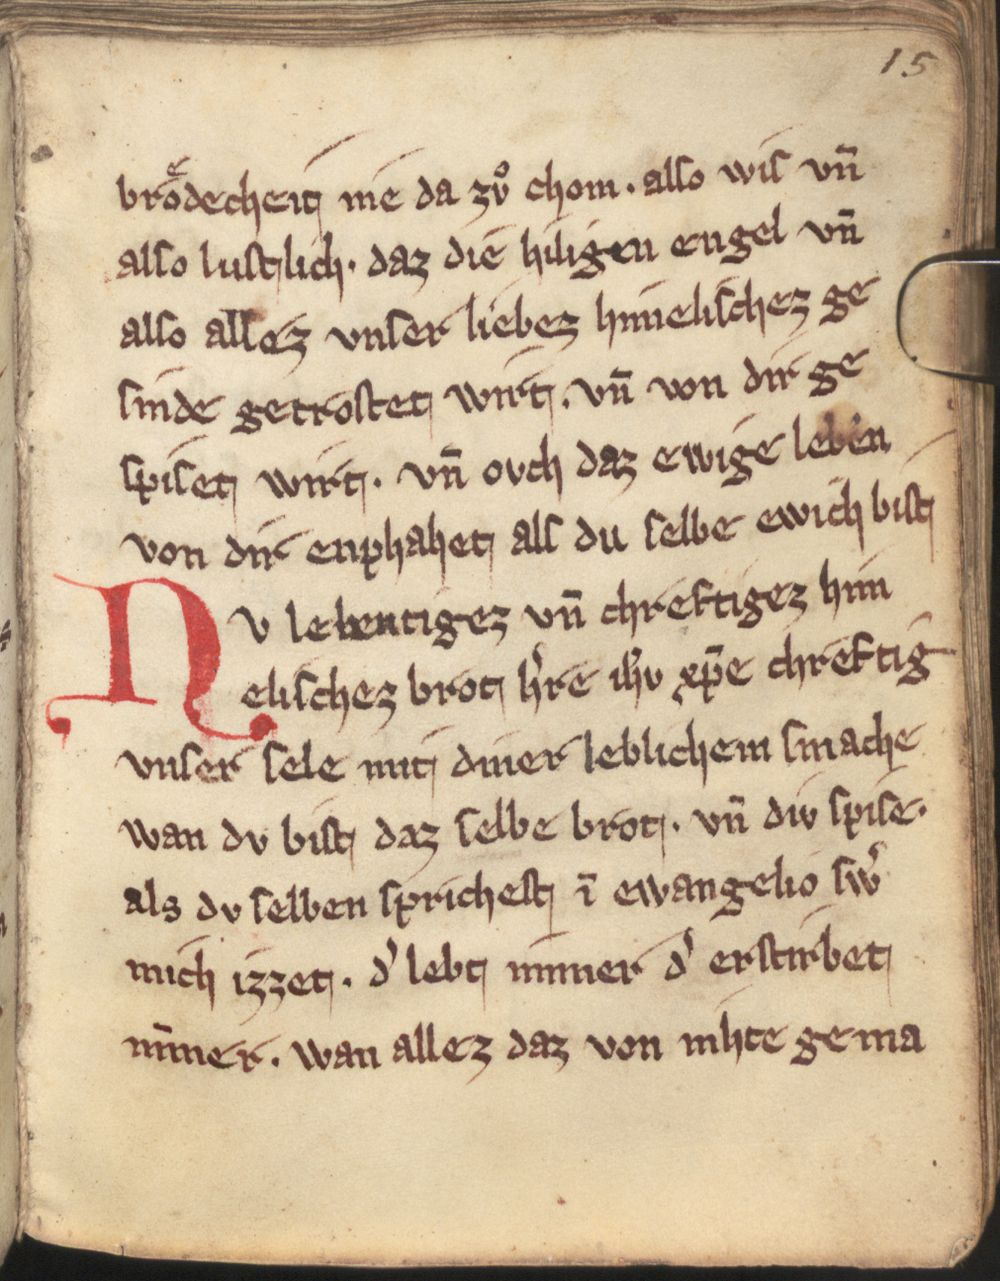 15
broͤdecheit nie da zvͦ chom. also wis vn̄
also lustlich. daz die hiligen engel vn̄
also allez vnser liebez himelischez ge
sinde getrostet wirt. vn̄ von dir ge
spiset wirt. vn̄ ovch daz ewige leben
von dir enphahet als du selbe ewich bist
Nv lebentigez vn̄ chreftigez him
elischez brot h̓re ih̄v xp̄e chreftig
vnser sele mit diner leblichem smache
wan dv bist daz selbe brot. vn̄ div spise.
als dv selben sprichest ī ewangelio sw̓
mich izzet. d̓ lebt immer d̓ erstirbet
nim̄er. wan allez daz von nihte gema